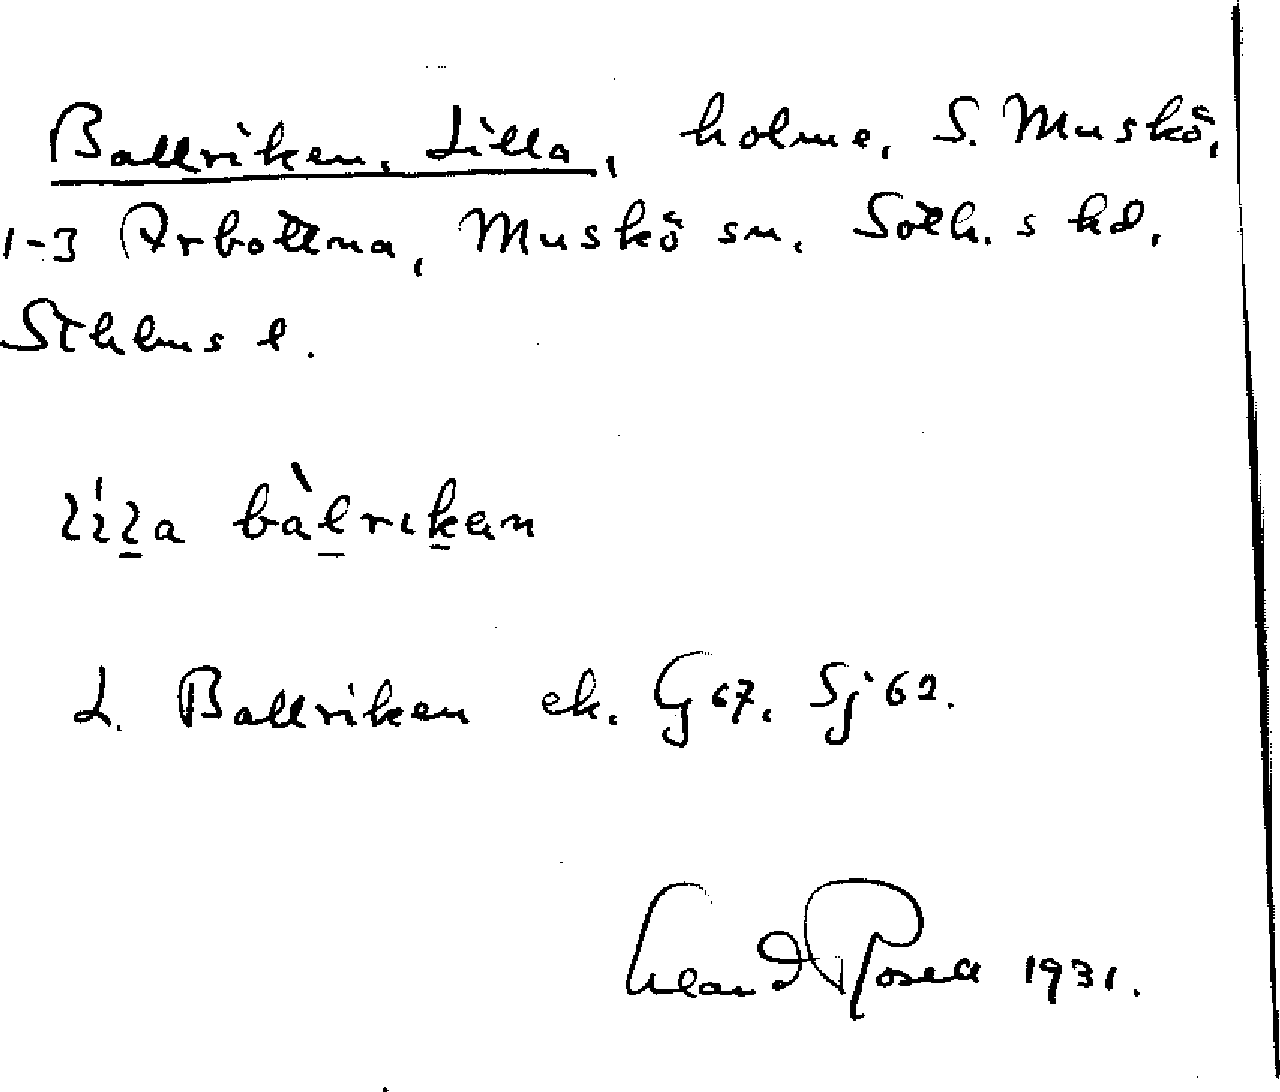 Ballriken, Lilla, holme, S. Muskö,
1-3 Arbottna, Muskö sn, Soth. s hd,
Sthlms l.
líla bàlrikan
L. Ballriken ek. G 67. Sj 62.
Rosell 1931.